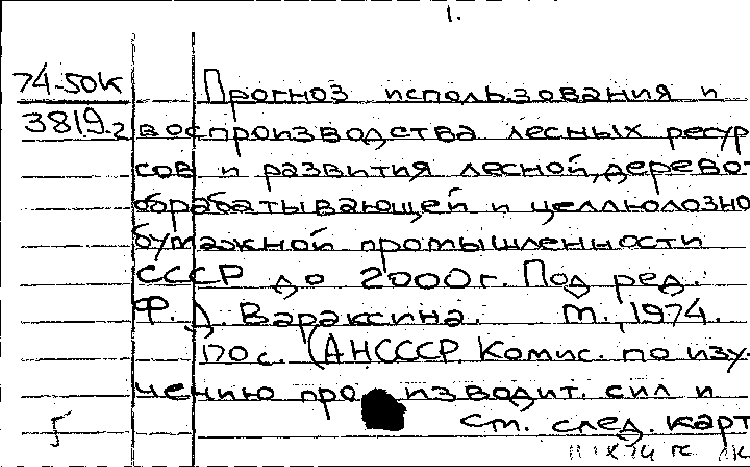 1.
74-50к
3819.2
Прогноз использования и
воспроизводства лесных ресур
сов и развития лесной, дерево-
обрабатывающей и целлюлозно
бумажной промышленности
СССР до 2000 г. Под ред.
Ф. Д. Вараксина. М., 1974.
170 с. (АН СССР. Комис. по изу-
чению производит. сил и
5 см. след. карт